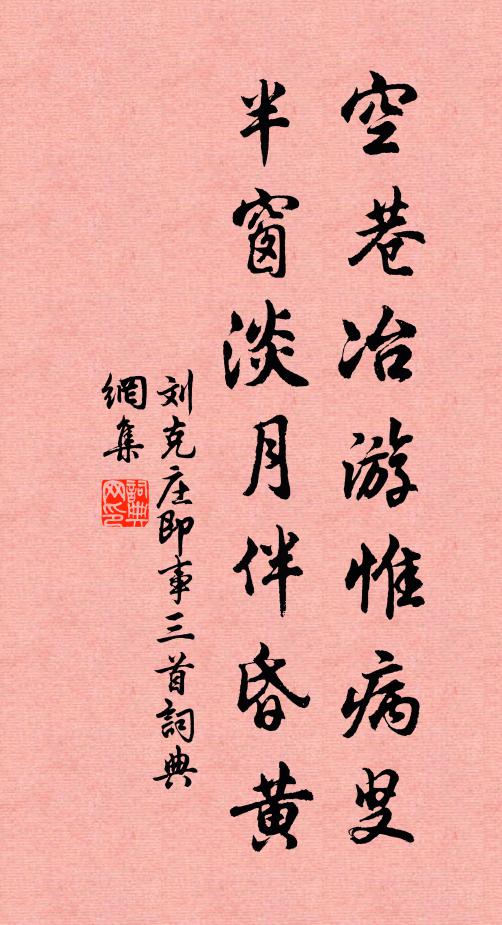 空巷冶游惟病叟
半窗淡月伴昏黄
刘克庄即事三首詞典
網集
詞典
网印